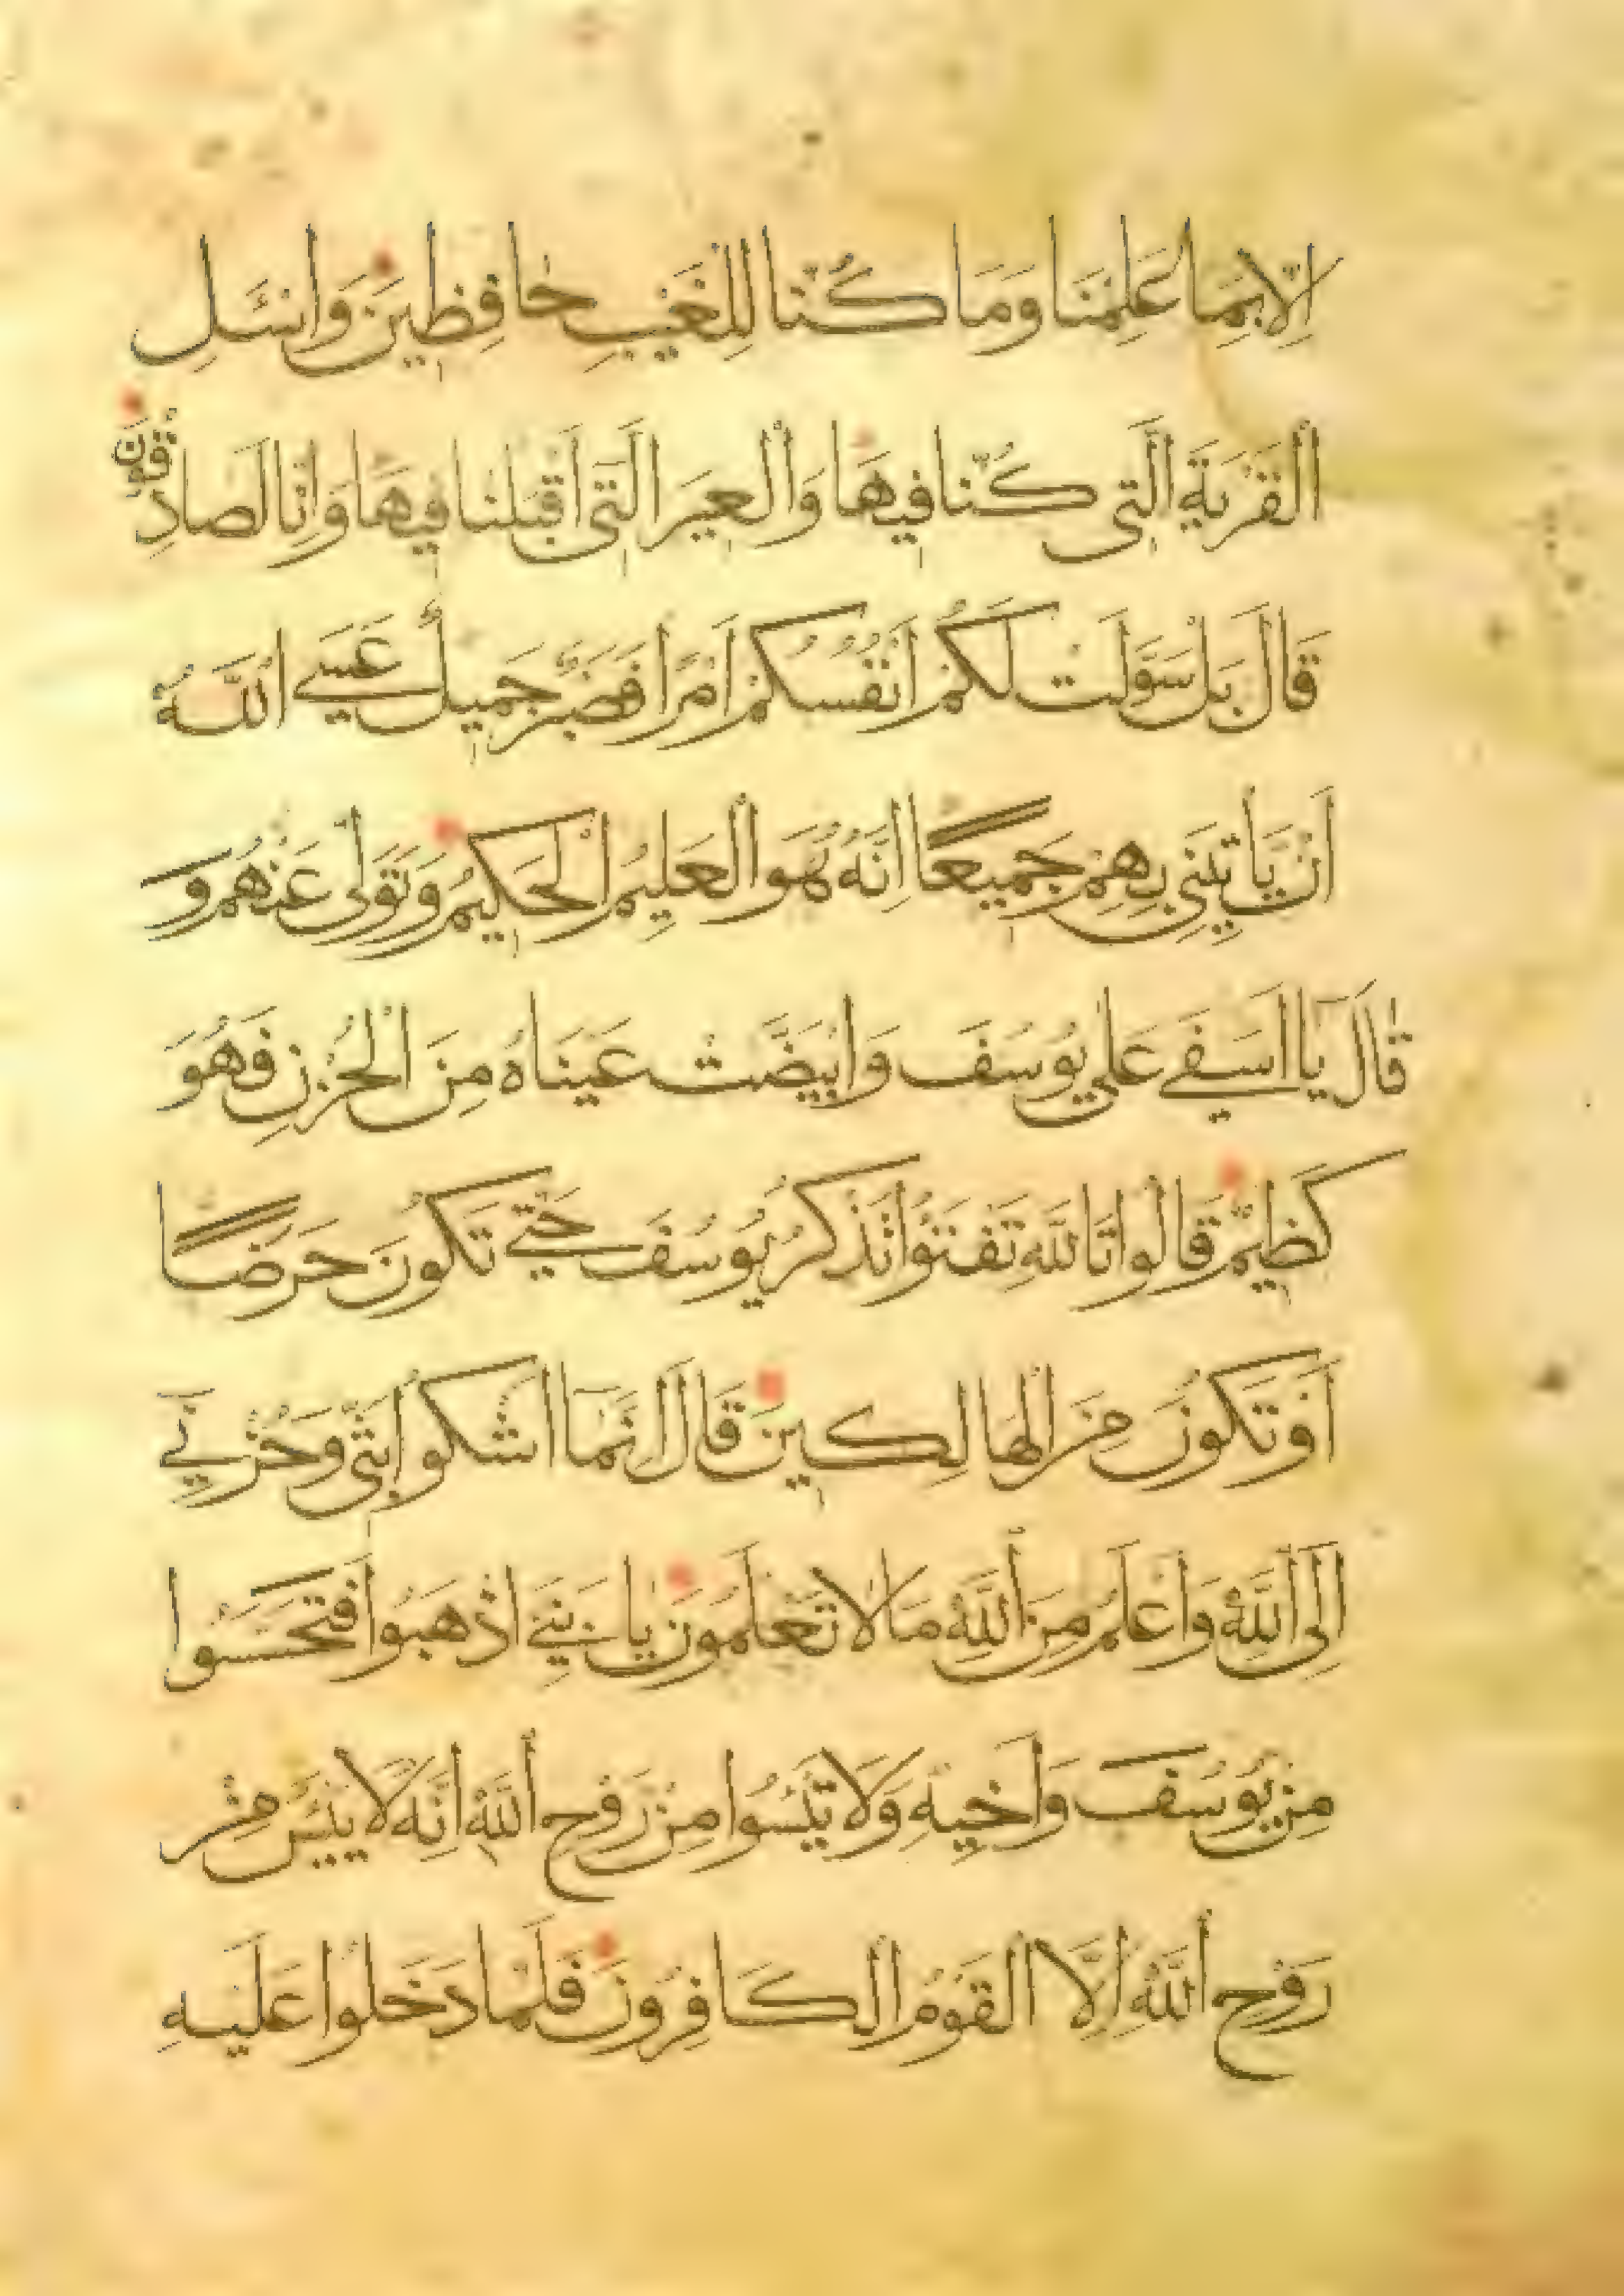 اِلَّا بِمَا عَلِمْنَا وَمَا كُنَّا لِلْغَيْبِ حَافِظِينَ وَاسْئَلِ
الْقَرْيَةَ الَّتِى كُنَّا فِيهَا وَالْعِيرَ الَّتِى اَقْبَلْنَا فِيهَا وَاِنَّا لَصَادِقُونَ
قَالَ بَلْ سَوَّلَتْ لَكُمْ اَنْفُسُكُمْ اَمْرًا فَصَبْرٌ جَمِيلٌ عَسَى اللّٰهُ
اَنْ يَأْتِيَنِى بِهِمْ جَمِيعًا اِنَّهُ هُوَ الْعَلِيمُ الْحَكِيمُ وَتَوَلّٰى عَنْهُمْ وَ
قَالَ يَا اَسَفٰى عَلٰى يُوسُفَ وَابْيَضَّتْ عَيْنَاهُ مِنَ الْحُزْنِ فَهُوَ
كَظِيمٌ قَالُوا تَاللّٰهِ تَفْتَؤُا تَذْكُرُ يُوسُفَ حَتّٰى تَكُونَ حَرَضًا
اَوْ تَكُونَ مِنَ الْهَالِكِينَ قَالَ اِنَّمَا اَشْكُو بَثِّى وَحُزْنِى
اِلَى اللّٰهِ وَاَعْلَمُ مِنَ اللّٰهِ مَا لَا تَعْلَمُونَ يَا بَنِىَّ اذْهَبُوا فَتَحَسَّسُوا
مِنْ يُوسُفَ وَاَخِيهِ وَلَا تَيْئَسُوا مِنْ رَوْحِ اللّٰهِ اِنَّهُ لَا يَيْئَسُ مِنْ
رَوْحِ اللّٰهِ اِلَّا الْقَوْمُ الْكَافِرُونَ فَلَمَّا دَخَلُوا عَلَيْهِ